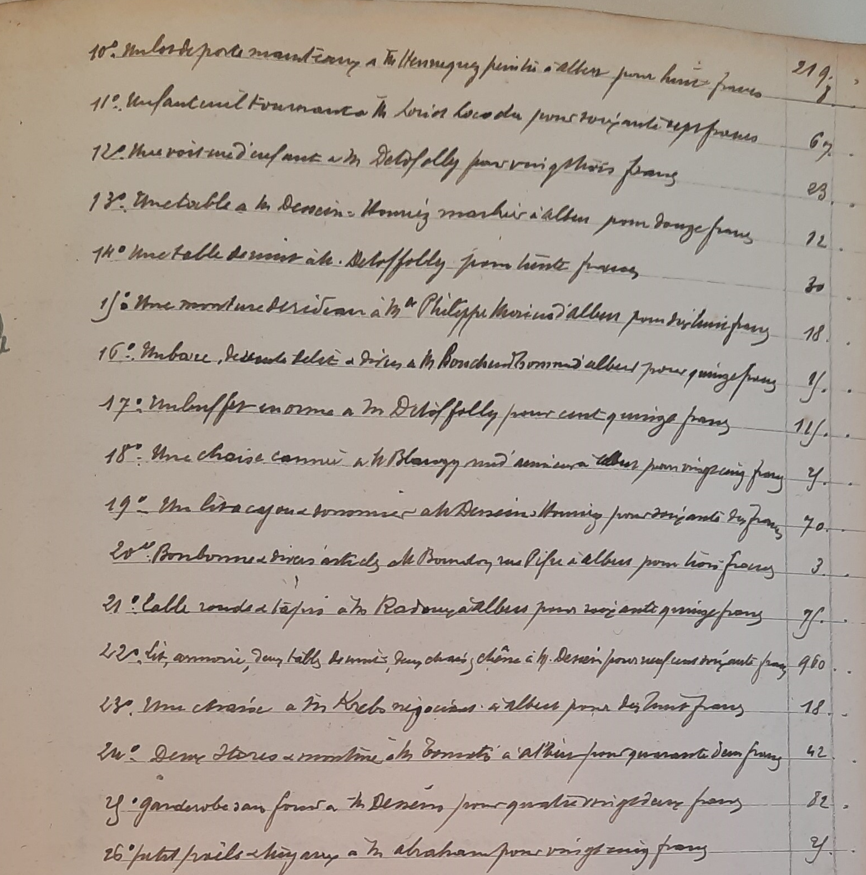 219.
10°. Un lot de porte manteaux a M Hennequez peintre à albert pour huit francs 8
11°. Un fauteuil tournant a M Loriot pour soixante sept francs 67
12°. Une voiture d'enfant a M Detoffolly pour vingt trois francs 23
13°. Une table a M Dessein-Houriez à albert pour douze francs 12
14° Une table de nuit à M. Detoffolly pour trente francs 30
15° Une monture de rideau à Mr Philippe d'albert pour dix huit francs 18
16° Un bac, descente de lit & divers a M d'albert pour quinze francs 15.
17° Un buffet en orme a M Detoffolly pour cent quinze francs 115.
18°. Une chaise cannée a M Blangy md à albert pour vingt cinq francs 25.
19° Un lit acajou & sommier a M Dessein-Houriez pour soixante dix francs 70
20° Bonbonne & divers articles a M Bourdon, rue à albert pour trois francs 3
21° Table ronde & tapis a M Radoux à albert pour soixante quinze francs 75.
22°. Lit, armoire, deux tables de nuit, deux chaises chêne à M. Dessein pour neuf cent soixante francs 960
23°. Une chaise a M Krebs négociant à albert pour dix huit francs 18
24°. Deux stores & monture à M à albert pour quarante deux francs 42
25° garderobe sans fond a M Dessein pour quatre vingt deux francs 82
26° petit poêle & tuyaux a M abraham pour vingt cinq francs 25